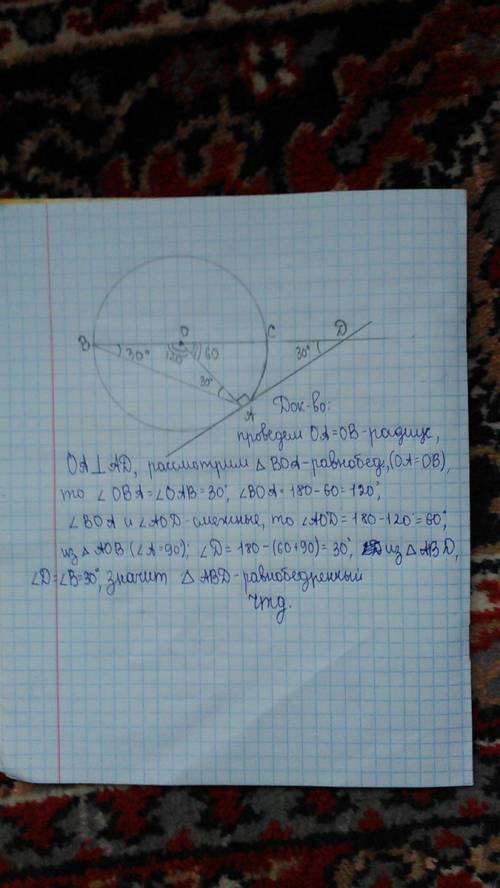 B 30° O 120° 60 C D 30°
30°
A
Док-во:
проведем OA=OB-радиус,
OA⊥AD, рассмотрим △BOA-равнобед.,(OA=OB),
то ∠OBA=∠OAB=30°, ∠BOA=180-60=120°,
∠BOA и ∠AOD-смежные, то ∠AOD=180-120°=60°,
из △AOB (∠A=90); ∠D=180-(60+90)=30°, из △ABD,
∠D=∠B=30°, значит △ABD-равнобедренный
чтд.